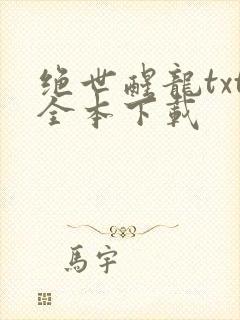 绝世醒龍txt
全本下載
馬宇